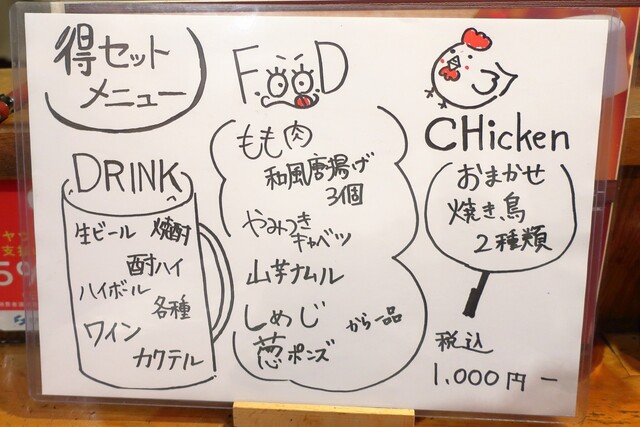 得セット
メニュー
DRINK
生ビール 焼酎
酎ハイ
ハイボール
各種
ワイン
カクテル
FOOD
もも肉
和風唐揚げ
3個
やみつき
キャベツ
山芋ナムル
しめじ
葱ポンズ
から一品
CHicken
おまかせ
焼き鳥
2種類
税込
1.000円ー